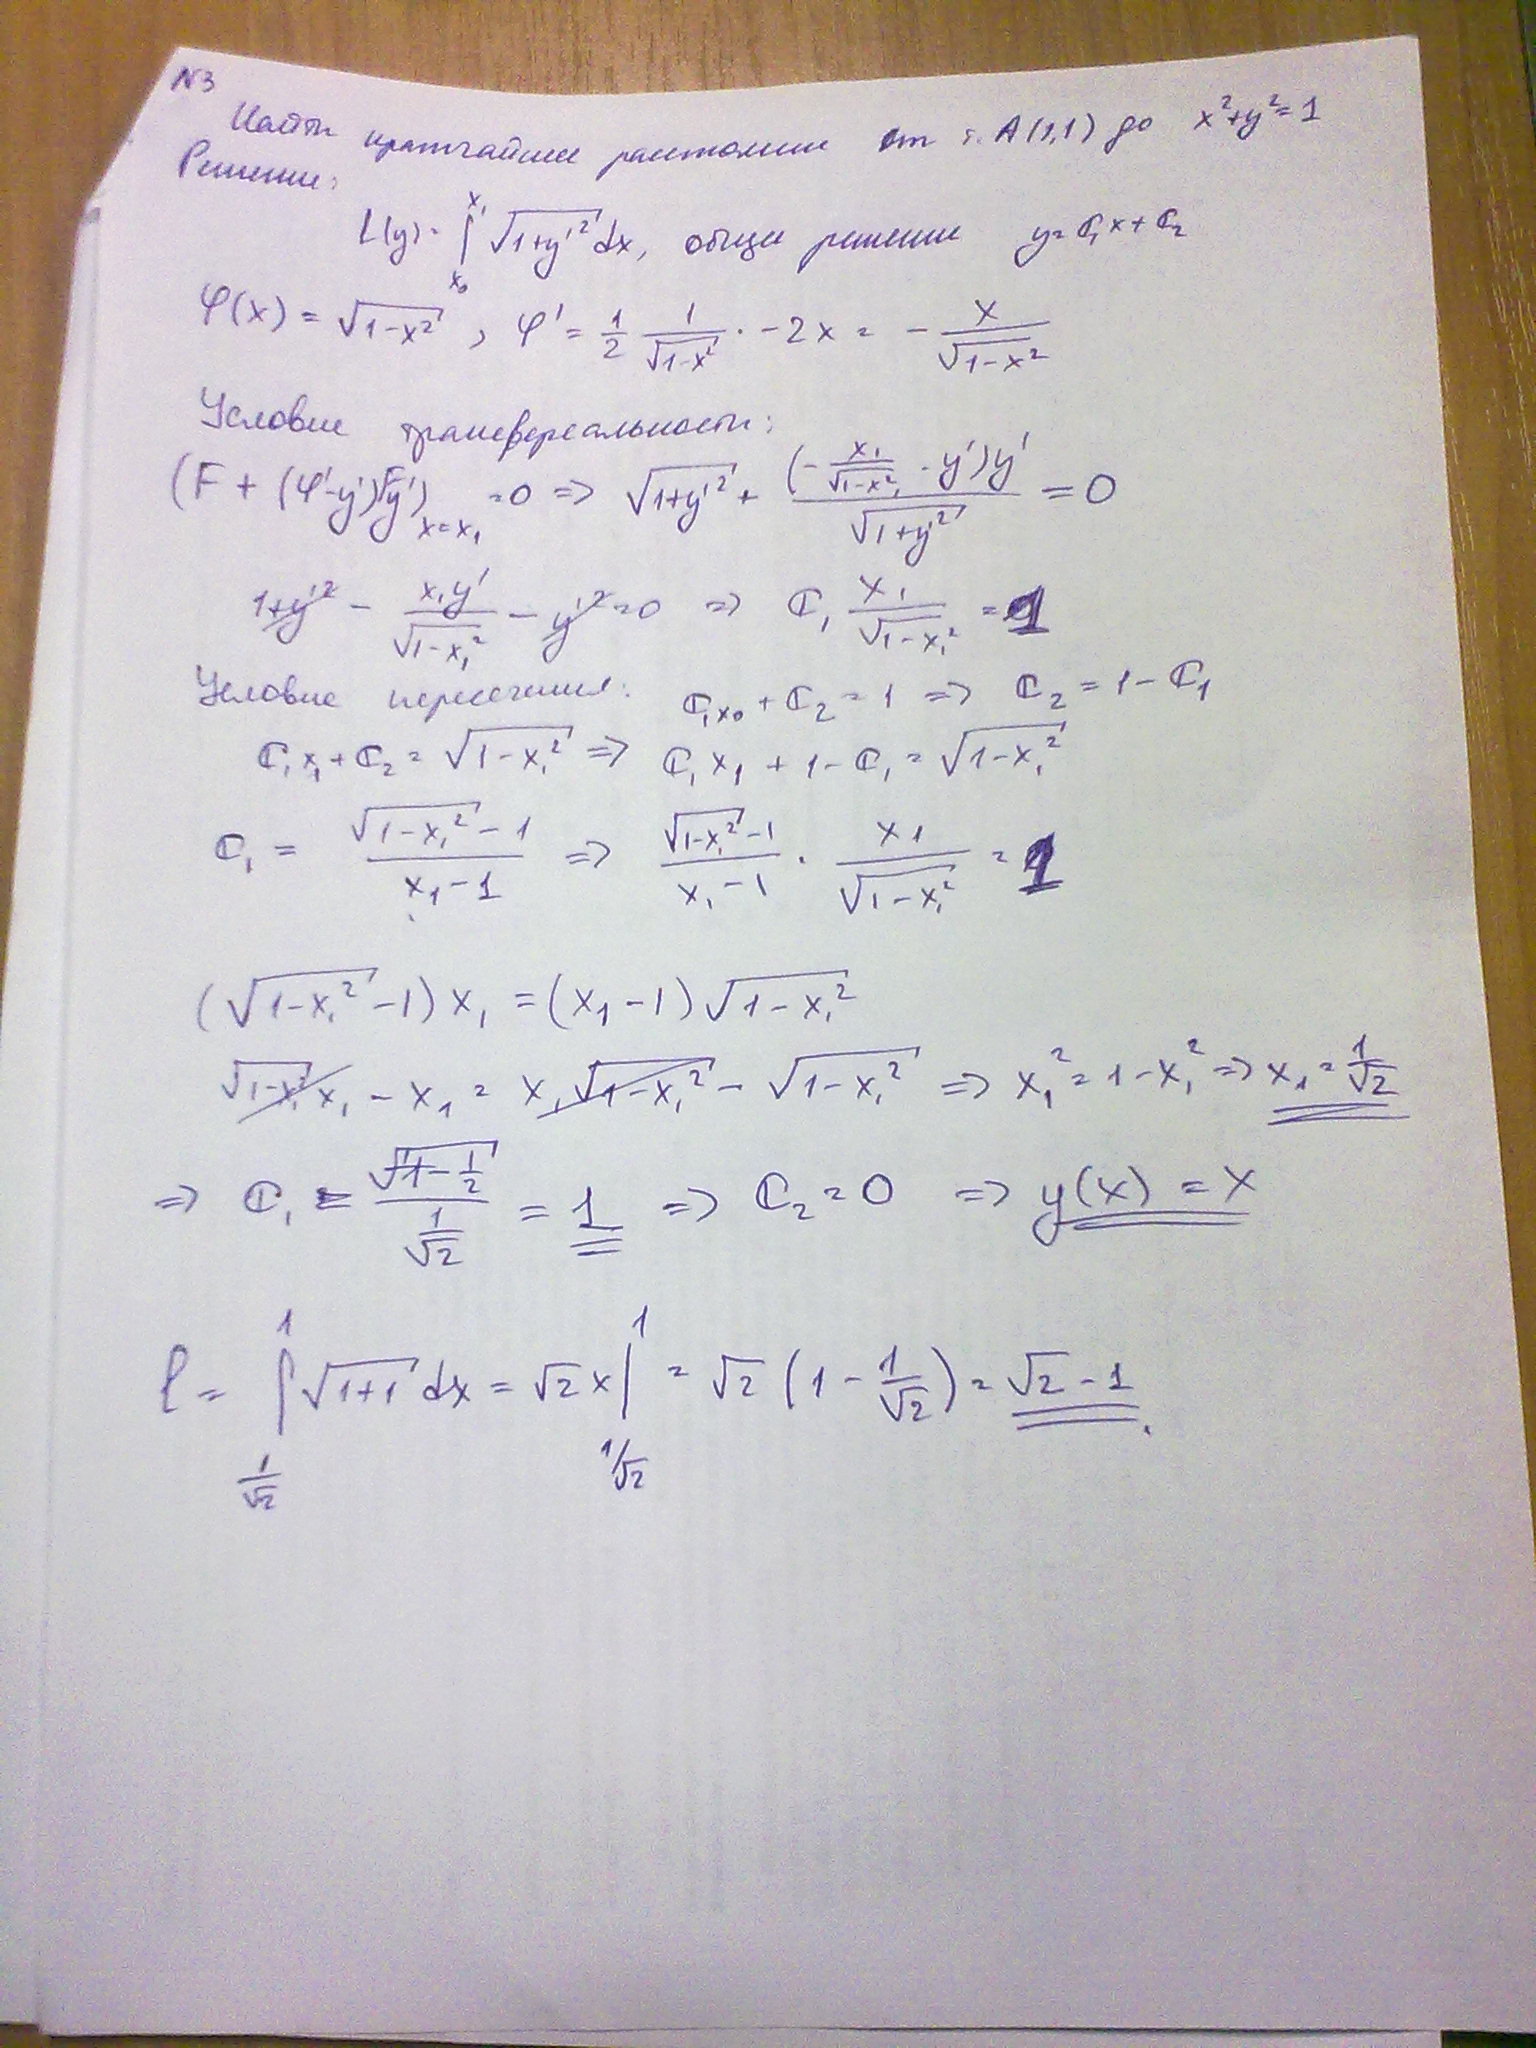 N3
Найти кратчайшее расстояние от т. A(1,1) до x²+y²=1
Решение:
L(y)= ∫_{x₀}^{x₁} √(1+y'²) dx, общее решение y=C₁x+C₂
φ(x) = √(1-x²), φ' = 1/2 1/√(1-x²) · -2x = - x/√(1-x²)
Условие трансверсальности:
(F + (φ'-y')F_y')_{x=x₁} =0 => √(1+y'²) + ((- x₁/√(1-x²₁) - y')y')/√(1+y'²) = 0
1+y'² - x₁y'/√(1-x₁²) - y'²=0 => C₁ x₁/√(1-x₁²) = 1
Условие пересечения: C₁x₀ + C₂ = 1 => C₂ = 1 - C₁
C₁x₁+C₂ = √(1-x₁²) => C₁x₁ + 1 - C₁ = √(1-x₁²)
C₁ = (√(1-x₁²) - 1)/(x₁-1) => (√(1-x₁²) -1)/(x₁-1) · x₁/√(1-x₁²) = 1
(√(1-x₁²) -1) x₁ = (x₁-1) √(1-x₁²)
√(1-x₁²) x₁ - x₁ = x₁√(1-x₁²) - √(1-x₁²) => x₁² = 1-x₁² => x₁ = 1/√2
=> C₁ = √(1-1/2) / (1/√2) = 1 => C₂ = 0 => y(x) = x
l = ∫_{1/√2}^{1} √(1+1) dx = √2 x|_{1/√2}^{1} = √2 (1 - 1/√2) = √2 - 1.